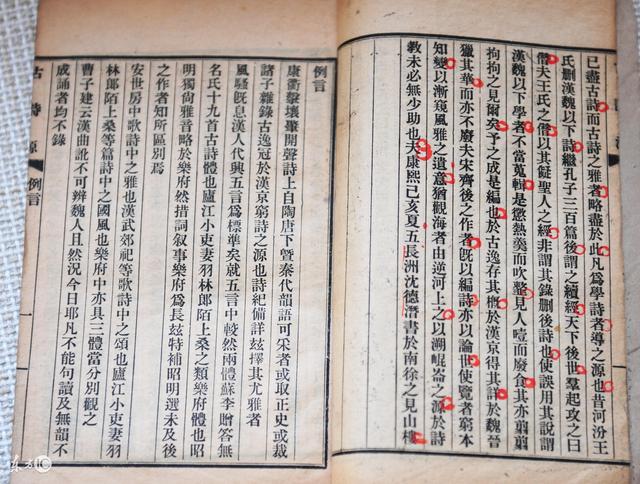 已盡古詩而古詩之雅者略盡於此凡為學詩者導之源也昔河汾王
氏刪漢魏以下詩繼孔子三百篇後謂之續經天下後世羣起攻之曰
僭夫王氏之僭以其儗聖人之經非謂其錄刪後詩也使誤用其說謂
漢魏以下學者不當蒐輯是懲熱羹而吹整見人噎而廢食其亦翦翦
拘拘之見爾矣予之成是編也於古逸存其槪於漢京得其詳於魏晉
獵其華而亦不廢夫宋齊後之作者旣以編詩亦以論世使覽者窮本
知變以漸窺風雅之遺意猶觀海者由逆河上之以溯崐崙之源於詩
教未必無少助也夫康熙己亥夏五長洲沈德潛書於南徐之見山樓
例言
康衢擊壤肇開聲詩上自陶唐下曁秦代韻語可采者或取正史或裁
諸子雜錄古逸冠於漢京窮詩之源也詩紀備詳茲擇其尤雅者
風騷旣息漢人代興五言為標準矣就五言中較然兩體蘇李贈答無
名氏十九首古詩體也廬江小吏妻羽林郎陌上桑之類樂府體也昭
明獨尚雅音略於樂府然措詞叙事樂府為長玆特補昭明選未及後
之作者知所區別焉
安世房中歌詩中之雅也漢武郊祀等歌詩中之頌也廬江小吏妻羽
林郎陌上桑等篇詩中之國風也樂府中亦具三體當分別觀之
曹子建云漢曲訛不可辨魏人且然況今日耶凡不能句讀及無韻不
成誦者均不錄
古詩源
例言
一